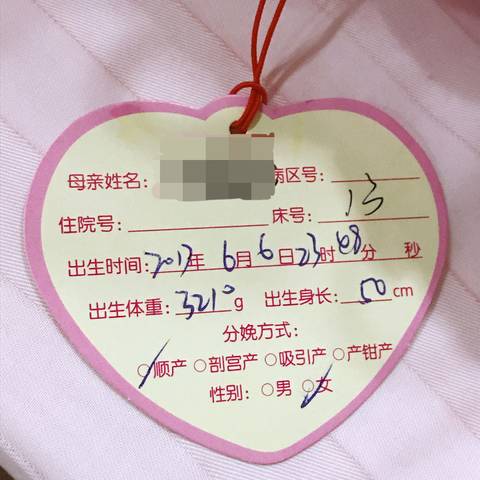 母亲姓名: 病区号:
住院号: 床号: 13
出生时间: 2017年 6月 6日 23时 08分 秒
出生体重: 3210 g 出生身长: 50 cm
分娩方式:
○顺产 ○剖宫产 ○吸引产 ○产钳产
性别: ○男 ○女